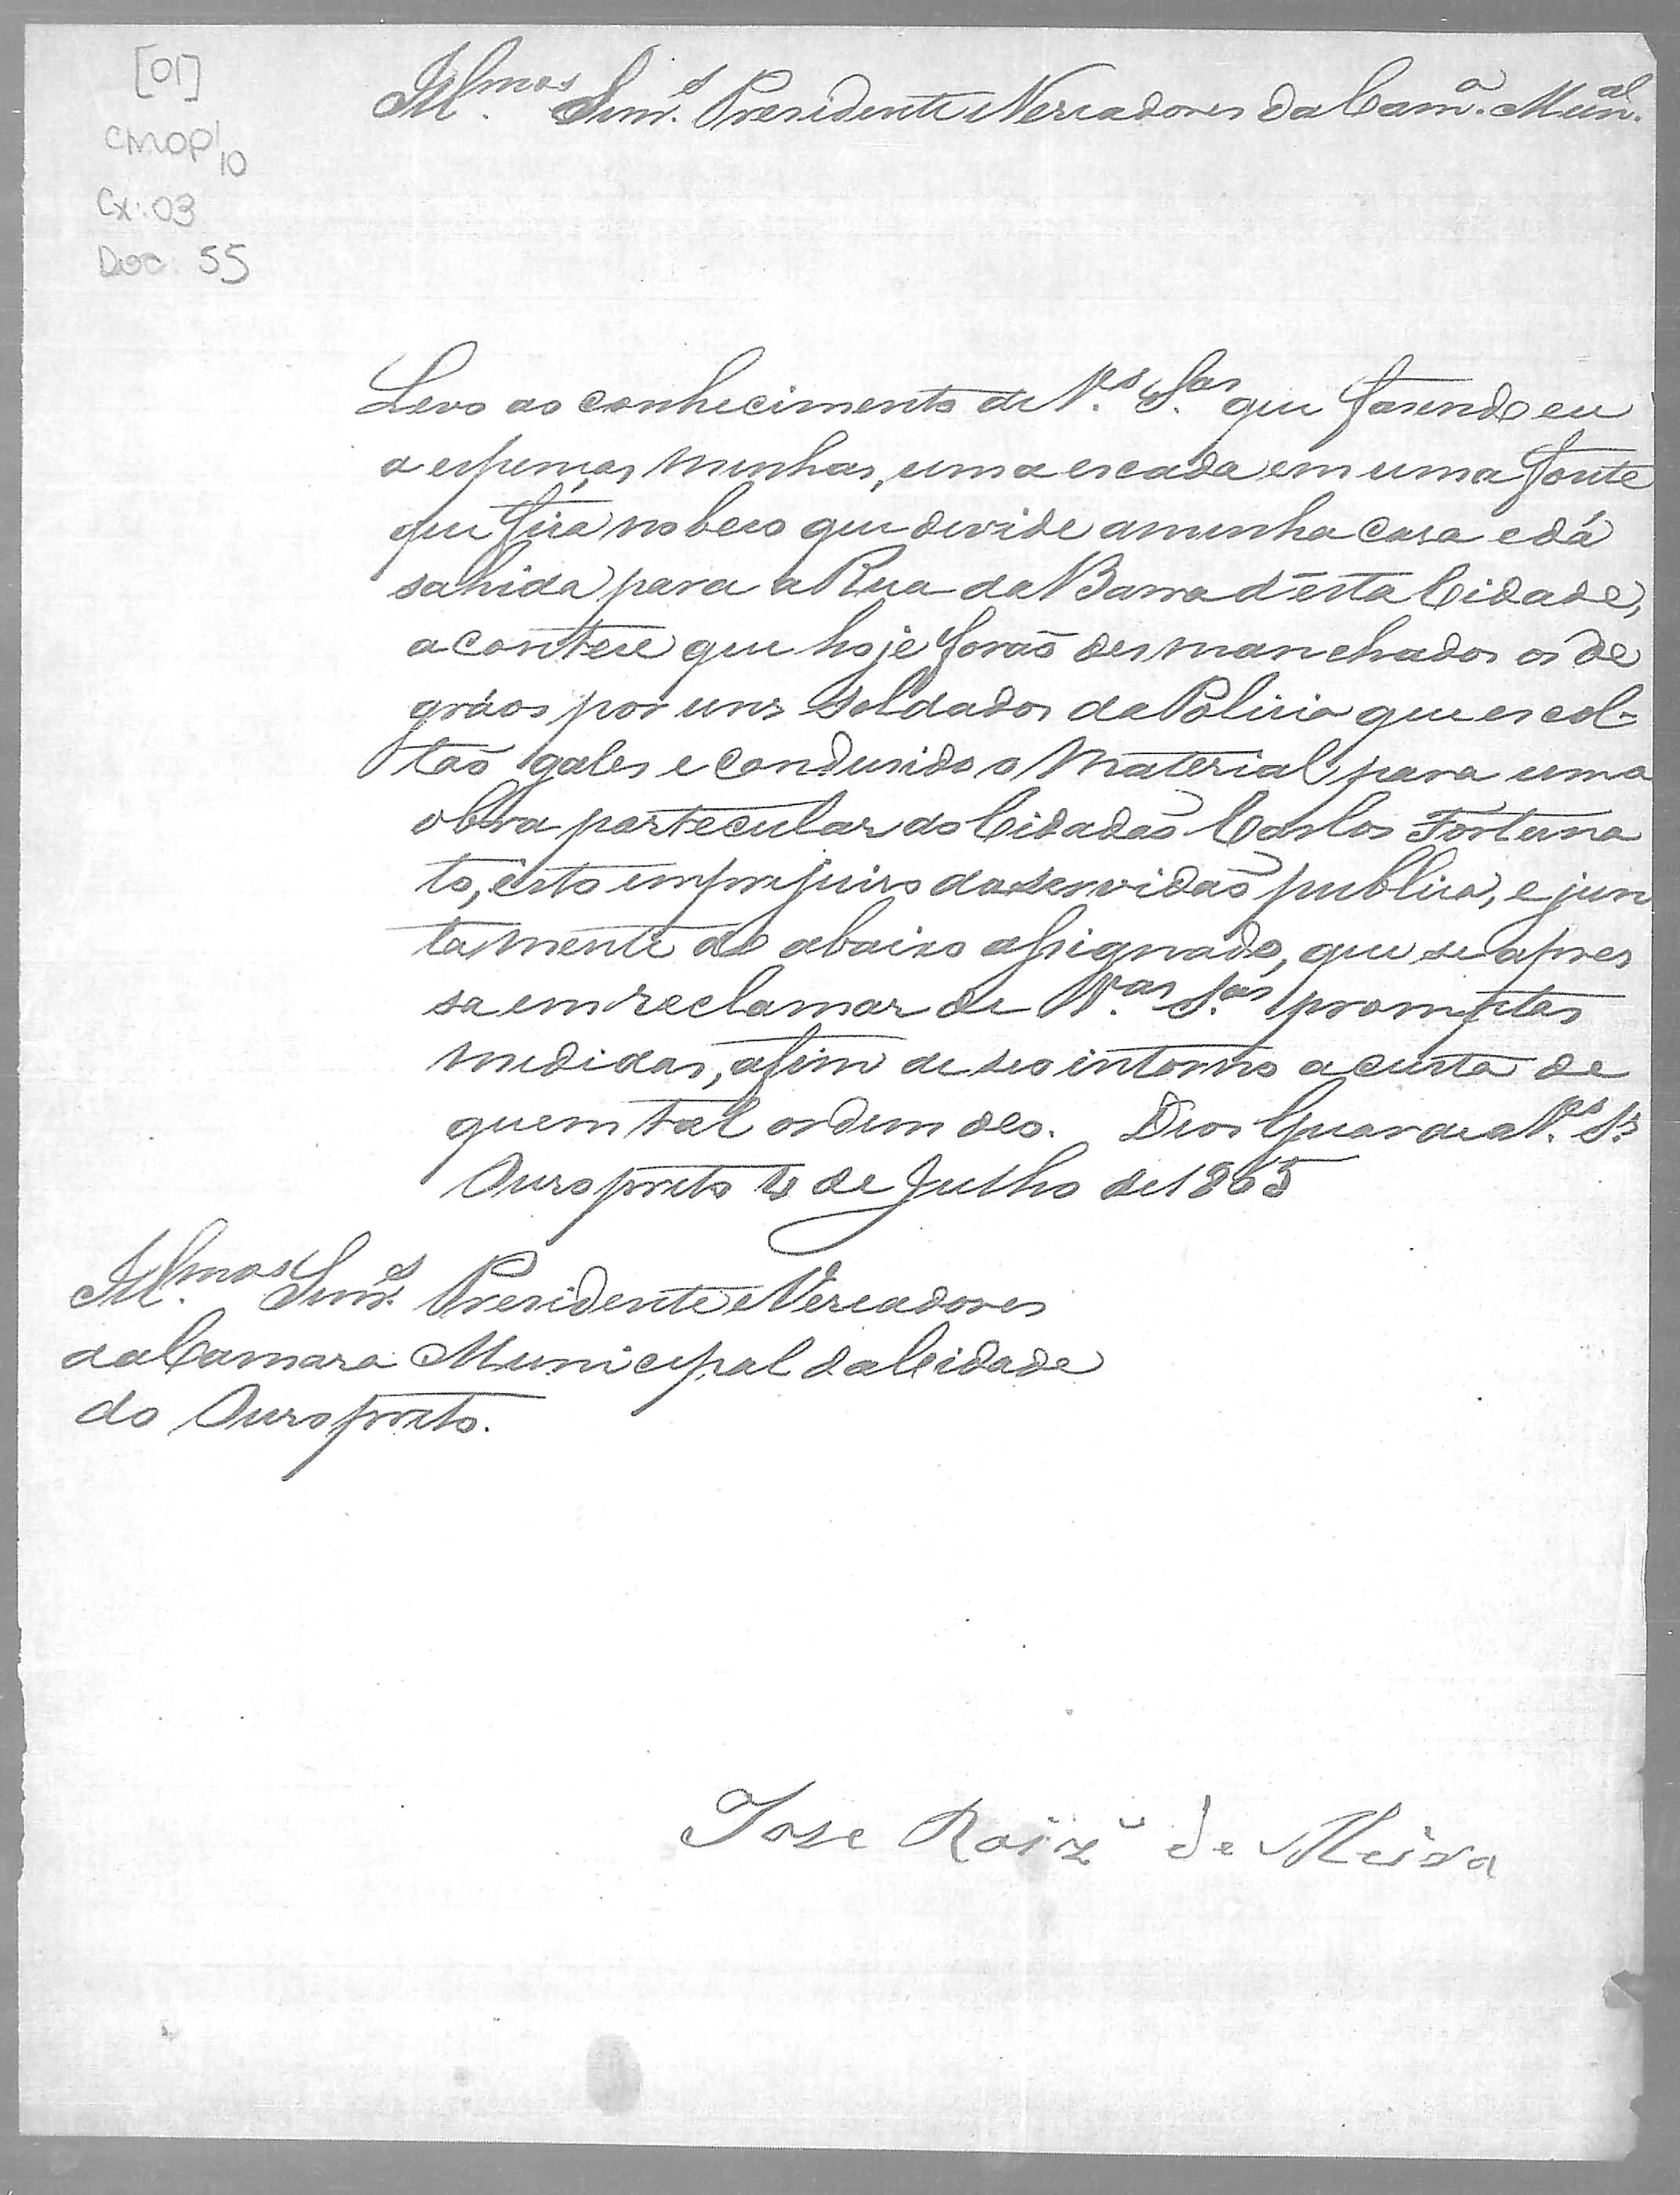 [01]
CMOP/10
Cx: 03
Doc: 55
Ill.mos Snrs. Presidente e Vereadores da Cam.a Mun.al
Levo ao conhecimento de V.as S.as que fasendo eu
a espenças minhas, uma escada em uma fonte
que fica no beco que devide a minha casa e dá
sahida para a Rua da Barra d'esta Cidade,
acontece que hoje forão desmanchados os de
gráos por uns Soldados da Policia que escol-
tão gales e condusido o Material para uma
obra partecular do Cidadão Carlos Fortuna
to, isto em prejuiso da servidão publica, e jun
tamente do abaixo assignado, que se apres
sa em reclamar de V.as S.as promptas
medidas, afim de seo intorno a custa de
quem tal ordem deo. Deos Guarde a V.as S.as
Ouro preto 4 de Julho de 1865
Ill.mos Snrs. Presidente e Vereadores
da Camara Municipal da Cidade
do Ouro preto.
Jose Roiz de Meira